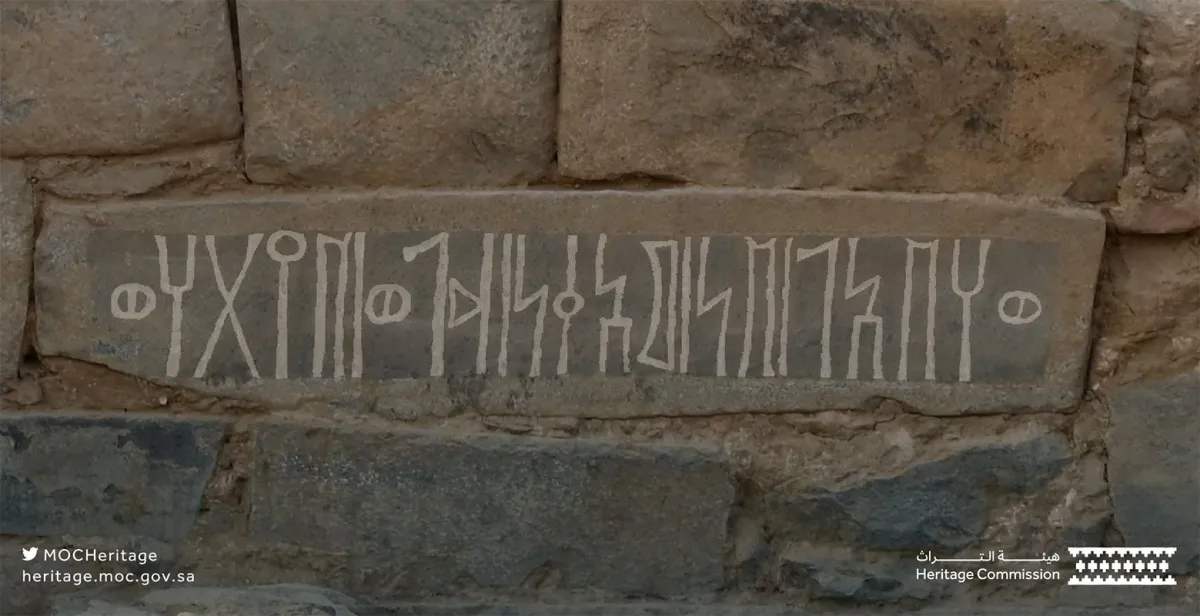 𐩥𐩠𐩨𐩱𐩡𐩽𐩨𐩬𐩽𐩣𐩱𐩤𐩬𐩽 𐩥𐩽𐩨𐩺𐩩𐩠𐩥
MOCHeritage
heritage.moc.gov.sa
هيئة التراث
Heritage Commission